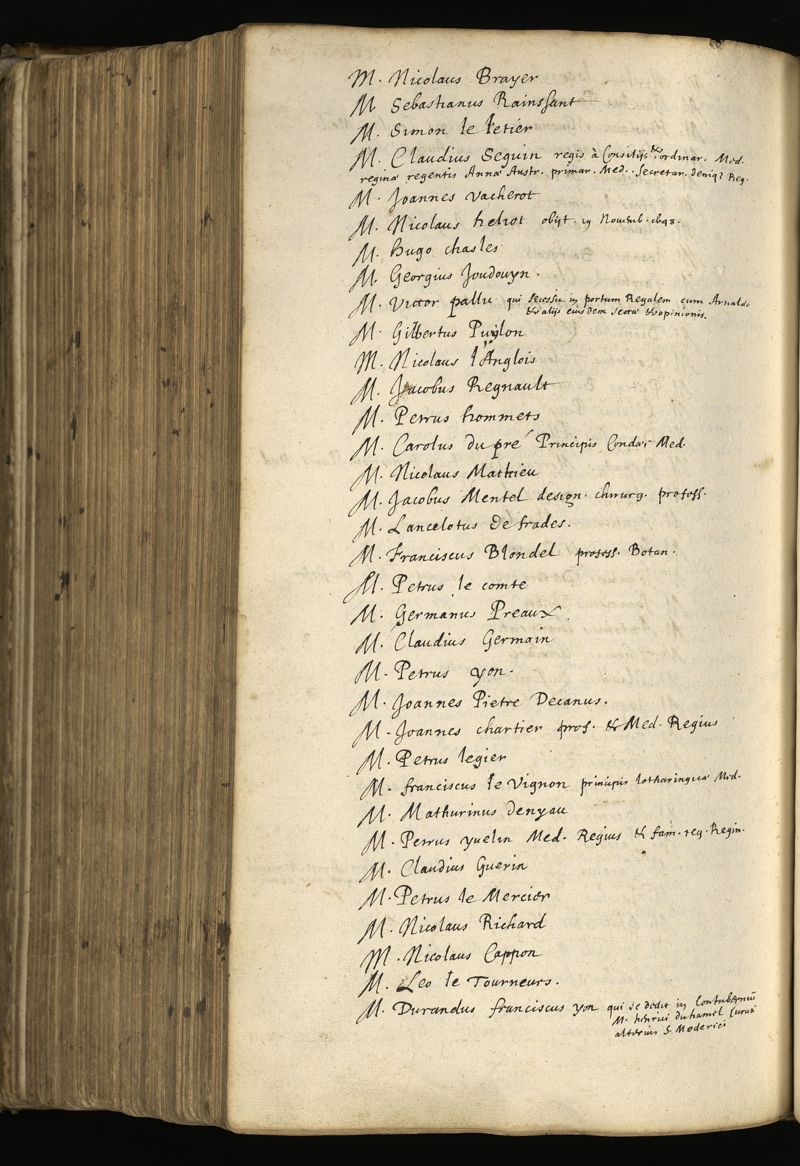 M. Nicolaus Brayer
M. Sebastianus Rainssant
M. Simon le letier
M. Claudius Seguin regis à Consilijs & ordinar. Med.
reginæ regentis Annæ Austr. primar. Med. Secretar. deniq? Reg.
M. Joannes Vacherot
M. Nicolaus heliot obijt in Novemb.
M. Hugo chasles
M. Georgius Joudouyn.
M. Victor pallu qui secessit in portum Regalem cum Arnaldo
& alijs eiusdem sectæ & opinionis.
M. Gilbertus Puylon
M. Nicolaus l'Anglois
M. Jacobus Regnault
M. Petrus hommets
M. Carolus du pré Principis Condæi Med.
M. Nicolaus Mathieu
M. Jacobus Mentel design. chirurg. profess.
M. Lancelotus de frades.
M. Franciscus Blondel profess. Botan.
M. Petrus le comte
M. Germanus Preaux.
M. Claudius Germain
M. Petrus yon.
M. Joannes Pietre Decanus.
M. Joannes chartier prof. & Med. Regius
M. Petrus legier
M. franciscus le Vignon principis lotharingiæ Med.
M. Mathurinus denyau
M. Petrus yvelin Med. Regius & fam. reg. Regin.
M. Claudius Guerin
M. Petrus le Mercier
M. Nicolaus Richard
M. Nicolaus Cappon
M. Leo le Tourneurs.
M. Durandus franciscus yon qui se dedit in Contubernium
M. henrici duhamel Curati
alterius S. Mederici